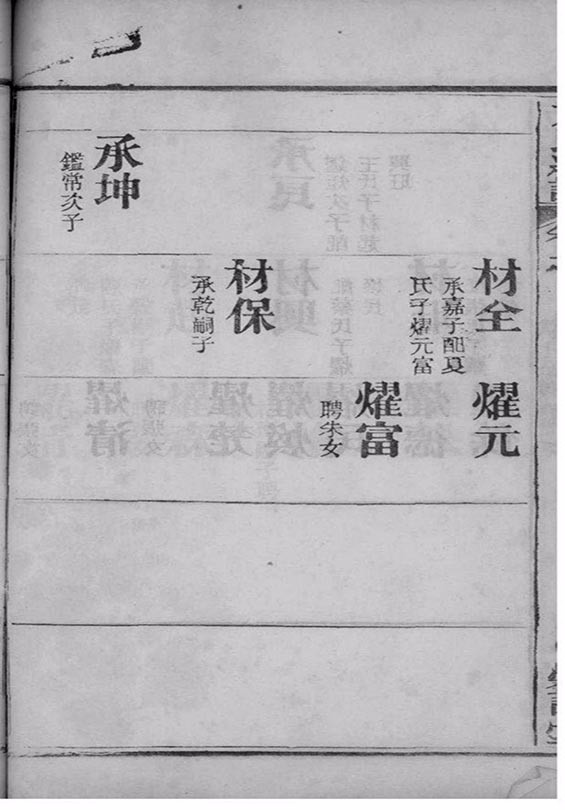 材全
承嘉子配夏
氏子燿元富
燿元
燿富
聘朱女
材保
承乾嗣子
承坤
鑑常次子